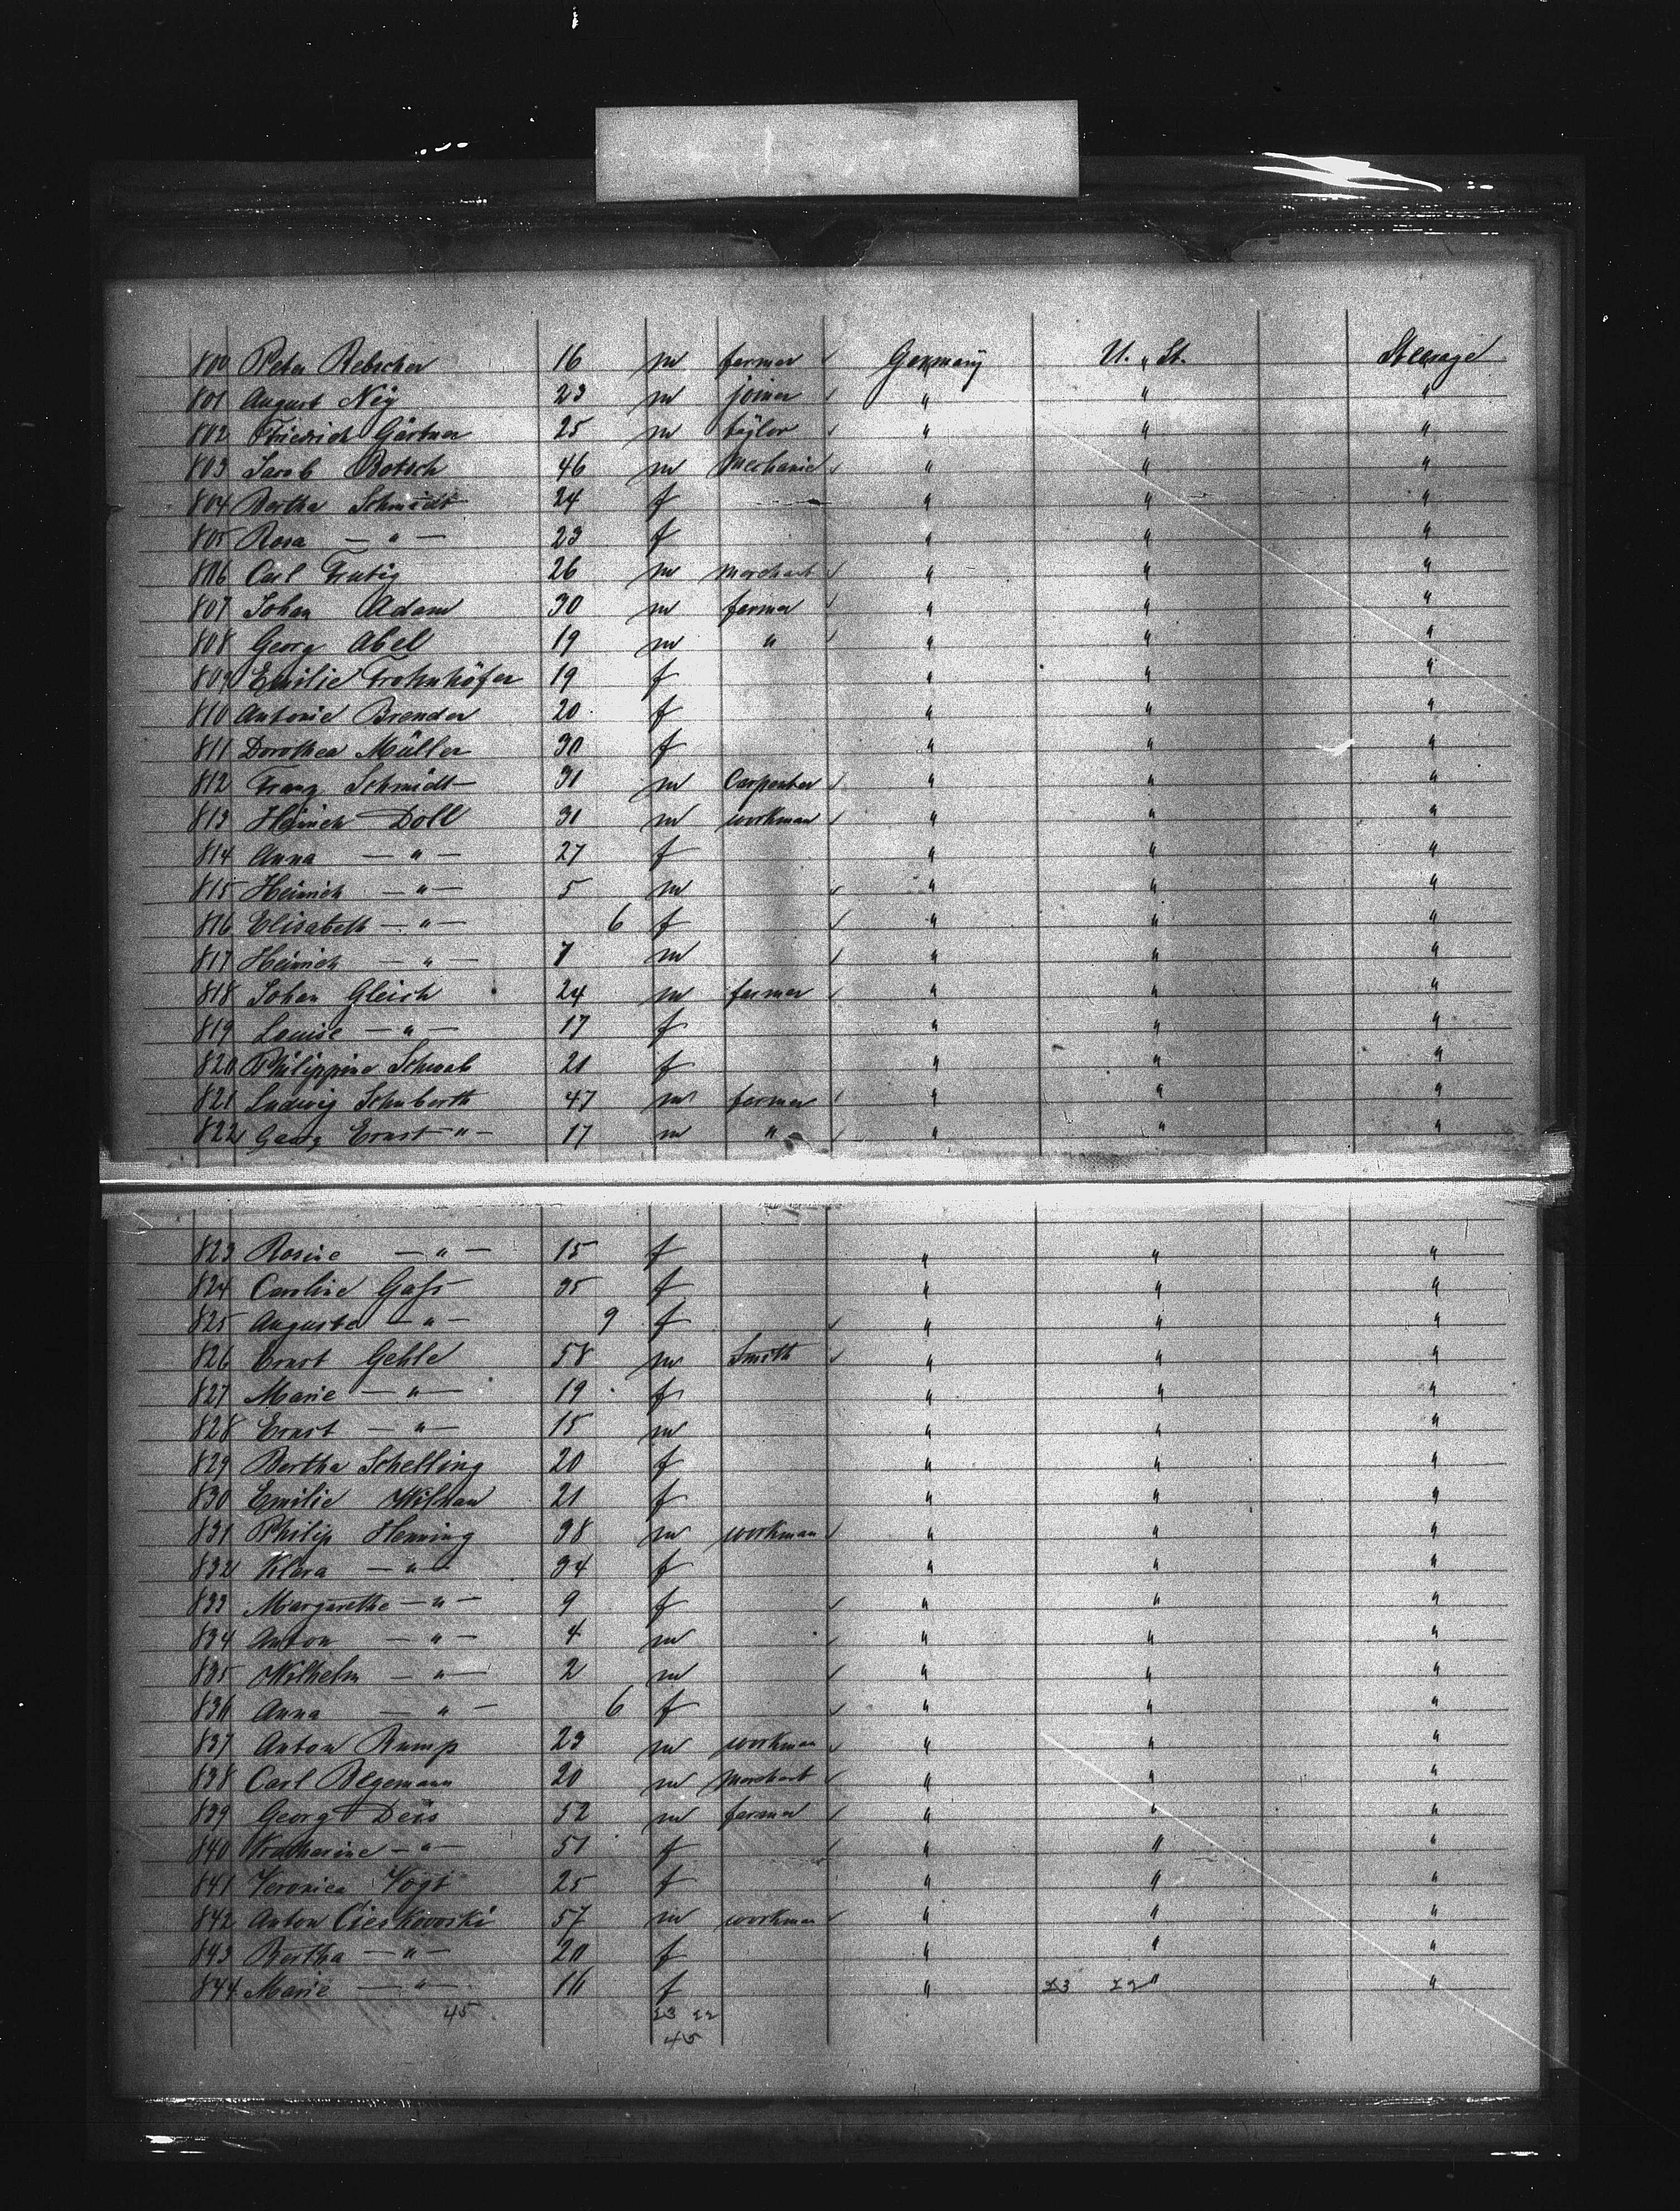 800 Peter Rebscher 16 m farmer Germany U. St. Steerage
801 August Ney 23 m joiner " " "
802 Friedrich Gärtner 25 m taylor " " "
803 Jacob Botsch 46 m Mechanic " " "
804 Bertha Schmidt 24 f " " "
805 Rosa — " — 23 f " " "
806 Carl Trutig 26 m merchant " " "
807 Johan Adam 30 m farmer " " "
808 Georg Abel 19 m " " " "
809 Emilie Frohnhöfer 19 f " " "
810 Antonie Brender 20 f " " "
811 Dorothea Müller 30 f " " "
812 Franz Schmidt 31 m Carpenter " " "
813 Heinrich Doll 31 m workman " " "
814 Anna — " — 27 f " " "
815 Heinrich — " — 5 m " " "
816 Elisabeth — " — 6 f " " "
817 Heinrich — " — 7 m " " "
818 Johan Gleich 24 m farmer " " "
819 Louise — " — 17 f " " "
820 Philippine Schwab 21 f " " "
821 Ludwig Schuberth 47 m farmer " " "
822 Georg Ernst — " — 17 m " " " "
823 Rosine — " — 15 f " " "
824 Caroline Gass 35 f " " "
825 Auguste — " — 9 f " " "
826 Ernst Gehle 58 m Smith " " "
827 Marie — " — 19 f " " "
828 Ernst — " — 15 m " " "
829 Bertha Schelling 20 f " " "
830 Emilie 21 f " " "
831 Philip Henning 38 m workman " " "
832 Klara — " — 34 f " " "
833 Margarethe — " — 9 f " " "
834 Anton — " — 4 m " " "
835 Wilhelm — " — 2 m " " "
836 Anna — " — 6 f " " "
837 Anton Rump 23 m workman " " "
838 Carl Begemann 20 m merchant " " "
839 Georg Deis 52 m farmer " " "
840 Katharine — " — 51 f " " "
841 Veronica Vogt 25 f " " "
842 Anton Cieskowski 57 m workman " " "
843 Bertha — " — 20 f " " "
844 Marie — " — 16 f " 23 22 " "
45 23 22
45